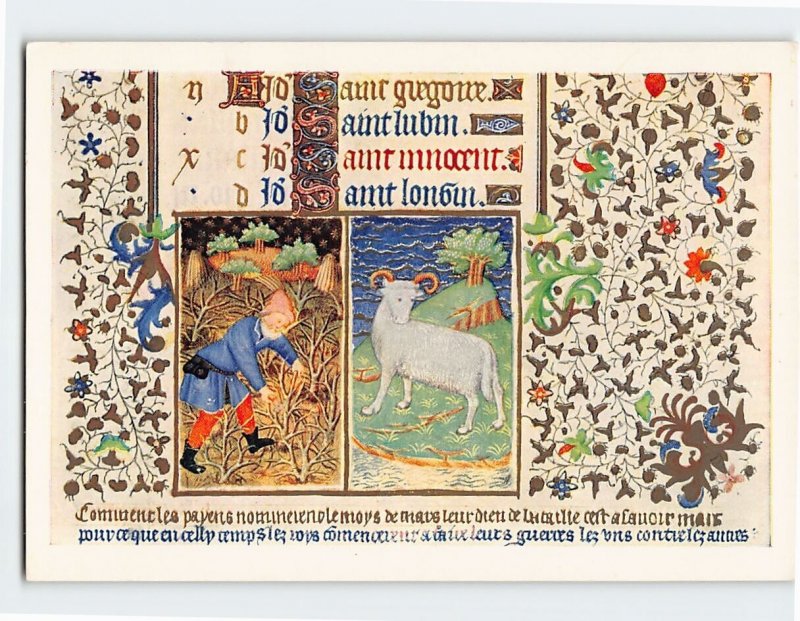 n A Jd Saint gregoire.
b Jd Saint lubin.
x c Jd Saint innocent.
d Jd Saint longin.
Comment les payens nommerent le moys de mars leur dieu de bataille cest a savoir mars
pour ce que en celly temps lez roys commencerent a faire leurs guerres lez uns contre lez autres